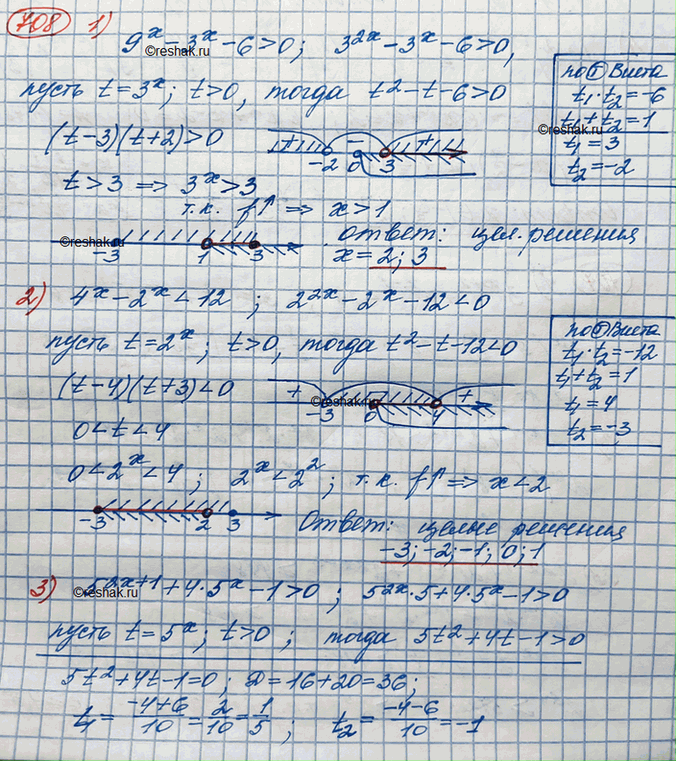 708 1) 9ˣ - 3ˣ - 6 > 0; 3²ˣ - 3ˣ - 6 > 0,
©reshak.ru
пусть t = 3ˣ; t > 0, тогда t² - t - 6 > 0
по т Виета
t₁·t₂ = -6
t₁ + t₂ = 1
t₁ = 3
t₂ = -2
(t-3)(t+2) > 0
+ -2 - 0 3 +
t > 3 ⇒ 3ˣ > 3
т.к. f↑ ⇒ x > 1
©reshak.ru
-3 1 3
Ответ: цел. решения
x = 2; 3
2) 4ˣ - 2ˣ < 12 ; 2²ˣ - 2ˣ - 12 < 0
пусть t = 2ˣ; t > 0, тогда t² - t - 12 < 0
по т Виета
t₁·t₂ = -12
t₁ + t₂ = 1
t₁ = 4
t₂ = -3
(t-4)(t+3) < 0
+ -3 0 - 4 +
©reshak.ru
0 < t < 4
0 < 2ˣ < 4 ; 2ˣ < 2² ; т.к. f↑ ⇒ x < 2
-3 2 3
Ответ: целые решения
-3; -2; -1; 0; 1
3) 5²ˣ⁺¹ + 4·5ˣ - 1 > 0 ; 5²ˣ·5 + 4·5ˣ - 1 > 0
©reshak.ru
пусть t = 5ˣ; t > 0 ; тогда 5t² + 4t - 1 > 0
5t² + 4t - 1 = 0; D = 16 + 20 = 36;
t₁ = (-4+6)/10 = 2/10 = 1/5 ; t₂ = (-4-6)/10 = -1